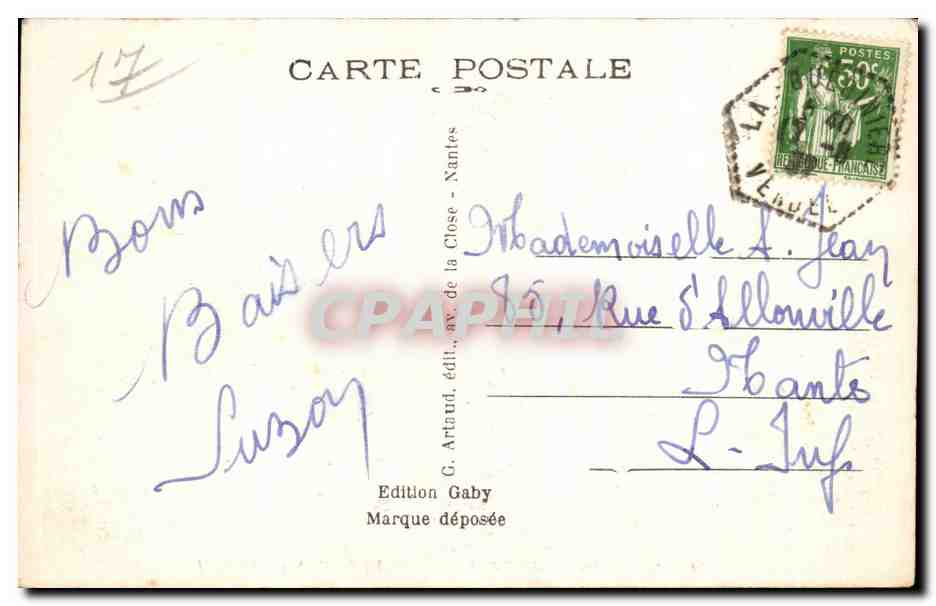 17
CARTE POSTALE
POSTES
50c
REPUBLIQUE-FRANÇAISE
LA
VENDÉE
Bons
Baisers
Suzon
Mademoiselle A. Jean
85, Rue d'Allonville
Nantes
L-Inf.
G. Artaud, édit., av. de la Close - Nantes
Edition Gaby
Marque déposée
CPAPHIL